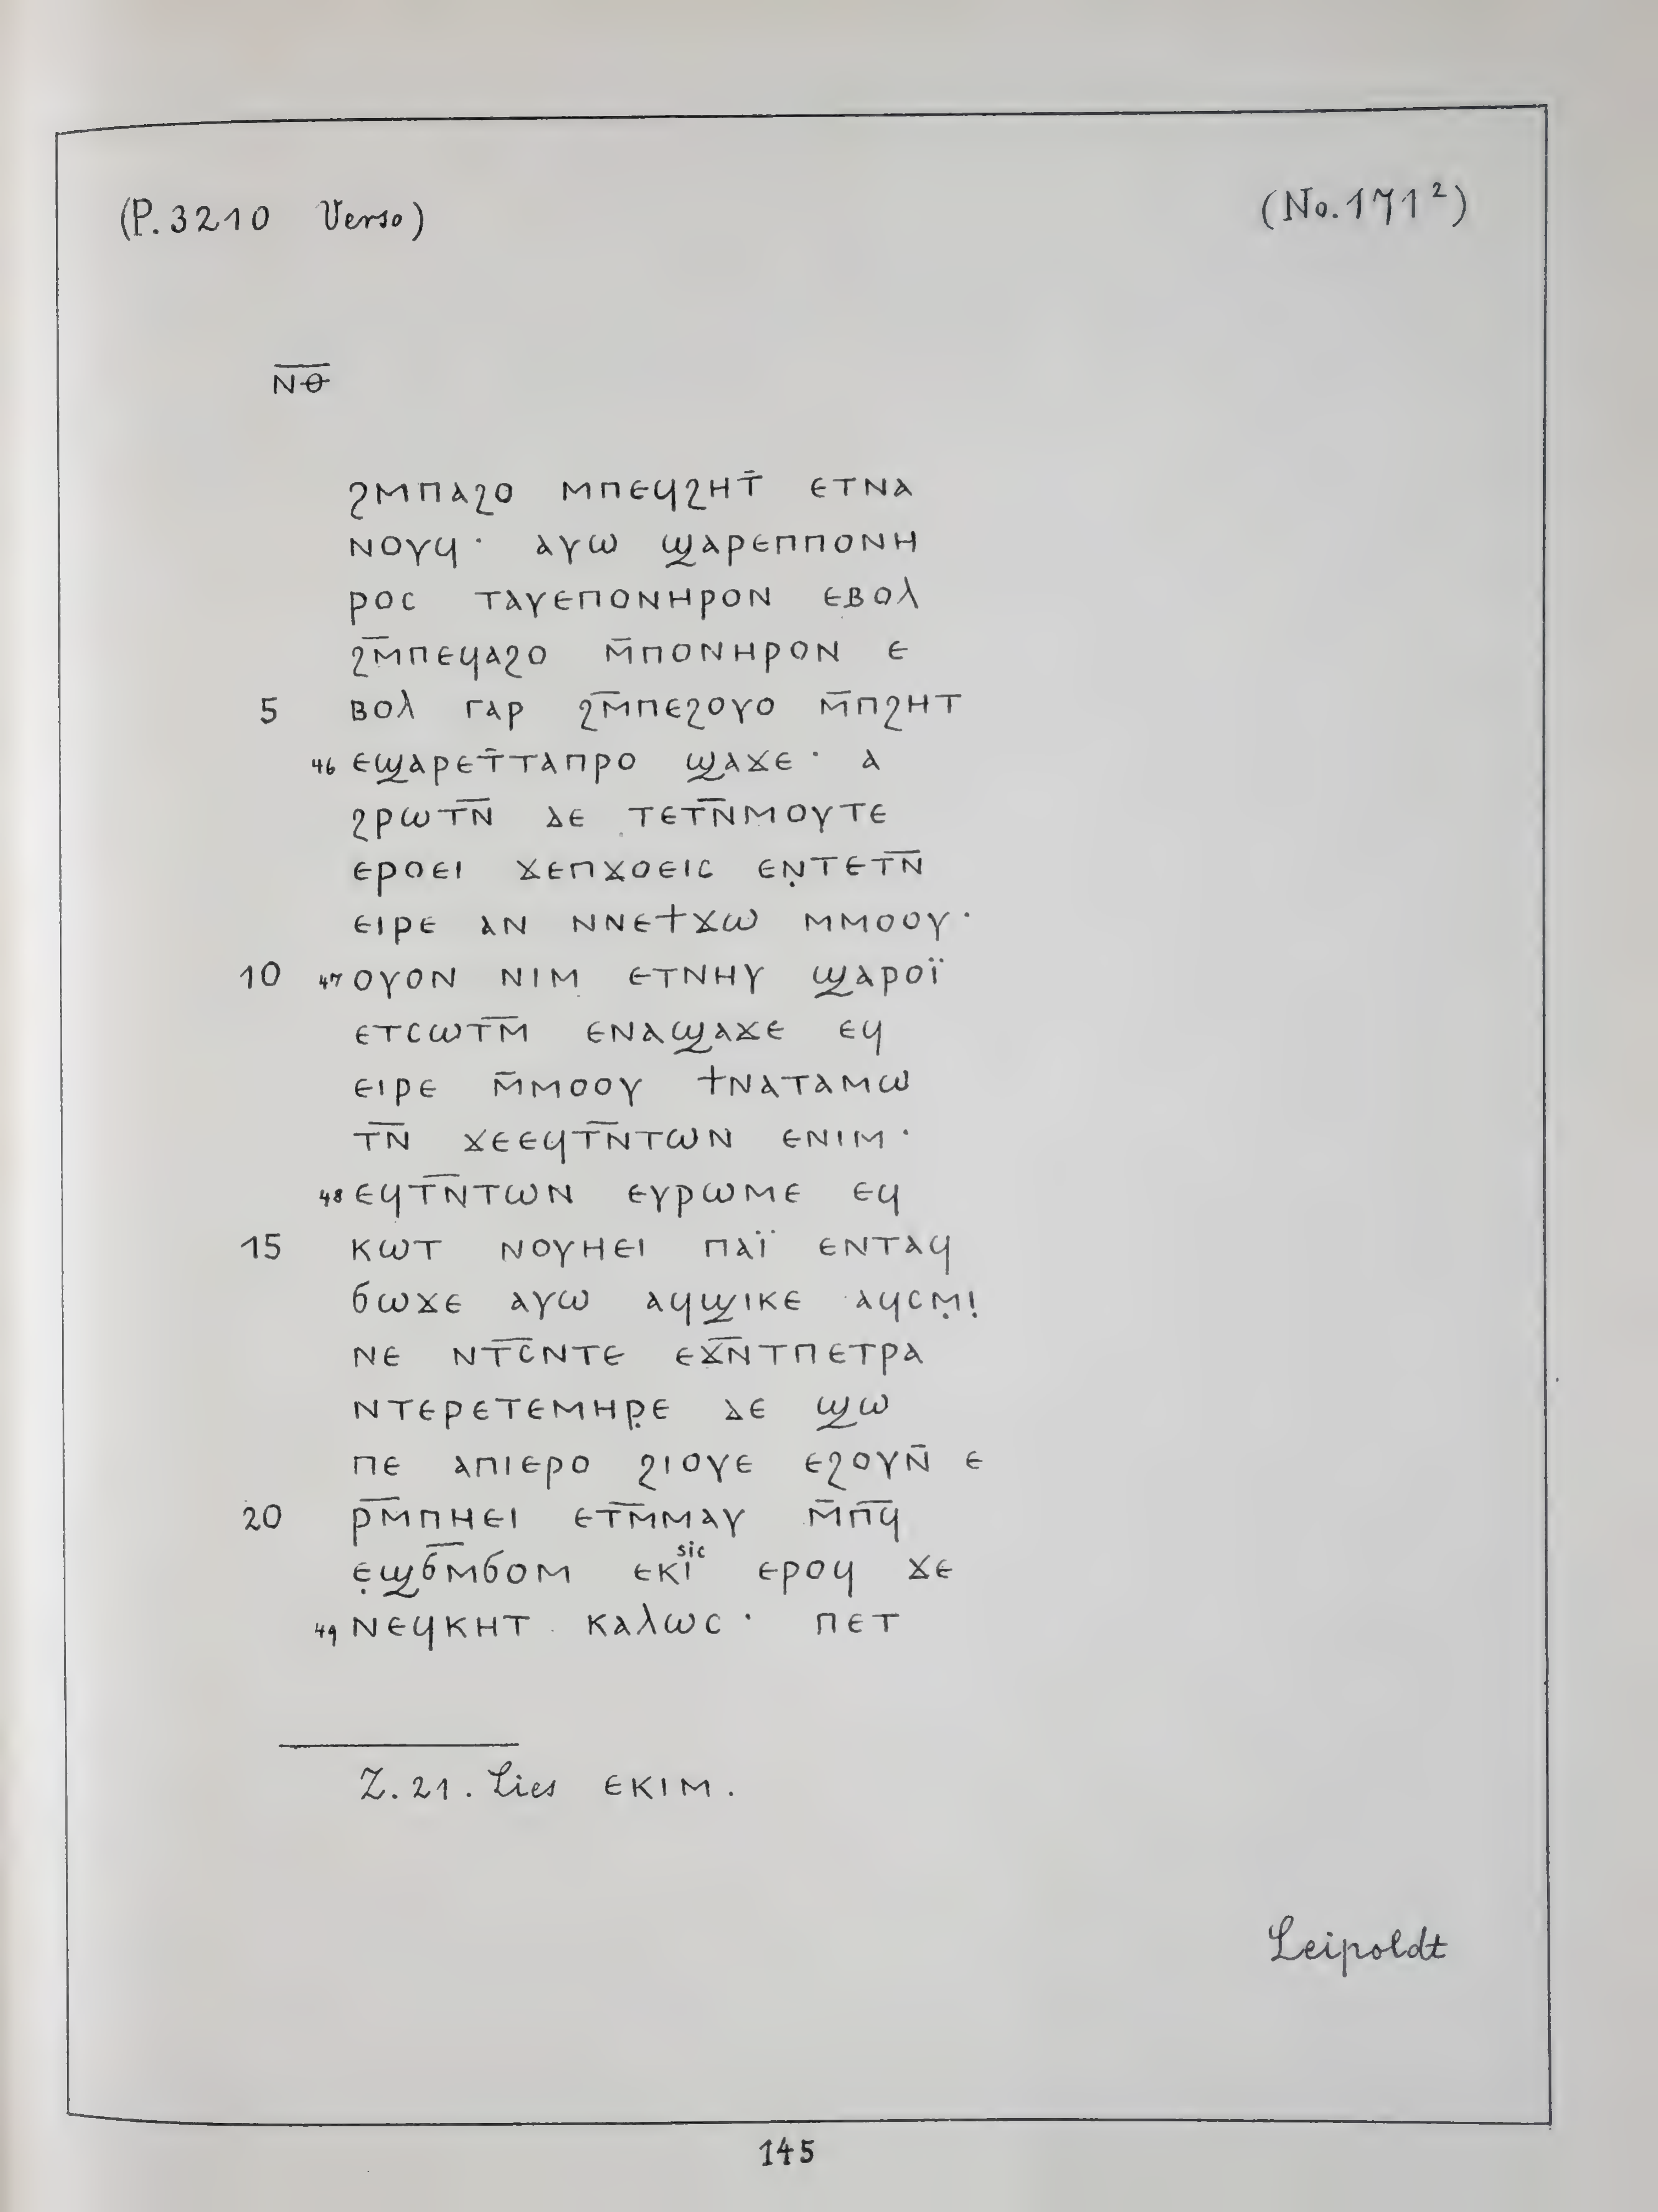 (P. 3210 Verso) (No. 171²)
ⲛ̅ⲑ̅
ϩⲙⲡⲁϩⲟ ⲙⲡⲉϥϩⲏⲧ̅ ⲉⲧⲛⲁ
ⲛⲟⲩϥ· ⲁⲩⲱ ϣⲁⲣⲉⲡⲡⲟⲛⲏ
ⲣⲟⲥ ⲧⲁⲩⲉⲡⲟⲛⲏⲣⲟⲛ ⲉⲃⲟⲗ
ϩⲙ̅ⲡⲉϥⲁϩⲟ ⲙ̅ⲡⲟⲛⲏⲣⲟⲛ ⲉ
5 ⲃⲟⲗ ⲅⲁⲣ ϩⲙ̅ⲡⲉϩⲟⲩⲟ ⲙ̅ⲡϩⲏⲧ
46 ⲉϣⲁⲣⲉⲧ̅ⲧⲁⲡⲣⲟ ϣⲁϫⲉ· ⲁ
ϩⲣⲱⲧ̅ⲛ̅ ⲇⲉ ⲧⲉⲧ̅ⲛ̅ⲙⲟⲩⲧⲉ
ⲉⲣⲟⲉⲓ ϫⲉⲡϫⲟⲉⲓⲥ ⲉⲛ̣ⲧⲉⲧ̅ⲛ̅
ⲉⲓⲣⲉ ⲁⲛ ⲛⲛⲉϯϫⲱ ⲙⲙⲟⲟⲩ·
10 47 ⲟⲩⲟⲛ ⲛⲓⲙ ⲉⲧⲛⲏⲩ ϣⲁⲣⲟⲓ̈
ⲉⲧⲥⲱⲧ̅ⲙ̅ ⲉⲛⲁϣⲁϫⲉ ⲉϥ
ⲉⲓⲣⲉ ⲙ̅ⲙⲟⲟⲩ ϯⲛⲁⲧⲁⲙⲱ
ⲧ̅ⲛ̅ ϫⲉⲉϥⲧ̅ⲛ̅ⲧⲱⲛ ⲉⲛⲓⲙ·
48 ⲉϥⲧ̅ⲛ̅ⲧⲱⲛ ⲉⲩⲣⲱⲙⲉ ⲉϥ
15 ⲕⲱⲧ ⲛⲟⲩⲏⲉⲓ ⲡⲁⲓ̈ ⲉⲛⲧⲁϥ
ϭⲱϫⲉ ⲁⲩⲱ ⲁϥϣⲓⲕⲉ ⲁϥⲥⲙ̣ⲓ̣
ⲛⲉ ⲛⲧ̅ⲥ̅ⲛⲧⲉ ⲉϫ̅ⲛ̅ⲧⲡⲉⲧⲣⲁ
ⲛⲧⲉⲣⲉⲧⲉⲙⲏⲣ̣ⲉ ⲇⲉ ϣⲱ
ⲡⲉ ⲁⲡⲓⲉⲣⲟ ϩⲓⲟⲩⲉ ⲉϩⲟⲩⲛ̅ ⲉ
20 ⲣ̅ⲙ̅ⲡⲏⲉⲓ ⲉⲧ̅ⲙ̅ⲙⲁⲩ ⲙ̅ⲡ̅ϥ̅
ⲉ̣ϣϭ̅ⲙ̅ϭⲟⲙ ⲉⲕⲓ sic ⲉⲣⲟϥ ϫⲉ
49 ⲛⲉϥⲕⲏⲧ ⲕⲁⲗⲱⲥ· ⲡⲉⲧ
Z. 21. Lies ⲉⲕⲓⲙ.
Leipoldt
145